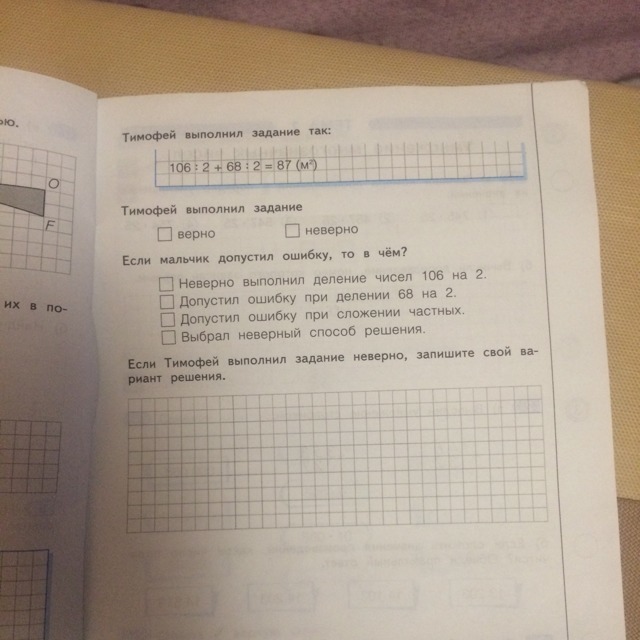 ью.
O
F
их в по-
Тимофей выполнил задание так:
106 : 2 + 68 : 2 = 87 (м²)
Тимофей выполнил задание
верно
неверно
Если мальчик допустил ошибку, то в чём?
Неверно выполнил деление чисел 106 на 2.
Допустил ошибку при делении 68 на 2.
Допустил ошибку при сложении частных.
Выбрал неверный способ решения.
Если Тимофей выполнил задание неверно, запишите свой ва-
риант решения.